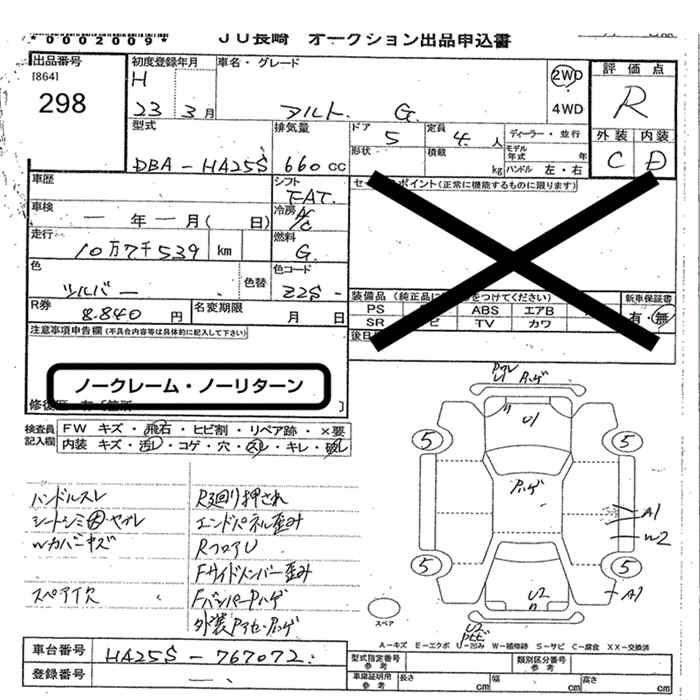 *0002009*
JU長崎 オークション出品申込書
出品番号
[864]
298
初度登録年月
H
23 3月
車名・グレード
アルト G
2WD
4WD
評価点
R
外装 内装
C D
型式
DBA-HA25S
排気量
660 CC
ドア
5
定員
4 人
形状
積載
kg
ディーラー・並行
モデル年式 年
ハンドル 左・右
車歴
シフト
FAT
車検
一 年 一 月( 日)
冷房
A/C
走行
10万7千539 km
燃料
G
色
シルバー
色替
色コード
Z2S
R券
8,840 円
名変期限
月 日
ポイント(正常に機能するものに限ります)
装備品 (純正品に をつけてください)
PS ABS エアB
SR TV カワ
新車保証書
有・無
後日
注意事項申告欄(不具合内容等は具体的に記入して下さい)
ノークレーム・ノーリターン
検査員記入欄
FW キズ・飛石・ヒビ割・リペア跡・×要
内装 キズ・汚レ・コゲ・穴・スレ・キレ・破レ
ハンドルスレ
シートシミ大・ヤブレ
Wカバーキズ
スペア欠
R廻り押され
エンドパネル歪み
RフロアU
Fサイドメンバー歪み
FバンパーPハゲ
U1
Pハゲ
5
5
A1
W2
5
5
A1
U2
スペア
A-キズ E-エクボ U-凹み W-補修跡 S-サビ C-腐食 XX-交換済
車台番号
HA25S-767072
登録番号
型式指定番号
参考
類別区分番号
参考
車庫証明用
参考
長さ cm
幅 cm
高さ cm